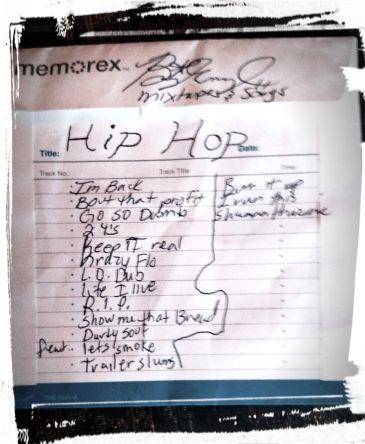 memorex™
mixtapes & songs
Title: Hip Hop Date:
Track No.: Track Title: Time:
I'm Back
Bout that profit
Go So Dumb
24's
Keep it real
Krazy Flo
L.O. Dub
Life I live
R.I.P.
Show me that Bread
Durty sout
feat. lets smoke
Trailer slums
Burn it up
I run this